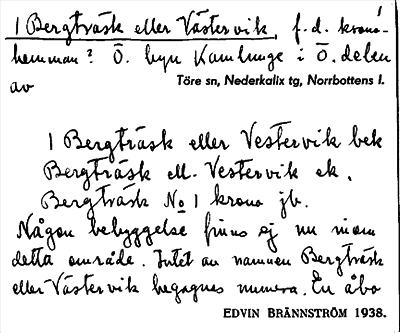 1 Bergträsk eller Västervik, f.d. krono-
hemman? Ö. byn Kamlunge i Ö. delen
av Töre sn, Nederkalix tg, Norrbottens l.
1 Bergträsk eller Vestervik bek
Bergträsk ell. Vestervik ek.
Bergträsk No 1 krono jb.
Någon bebyggelse finns ej nu inom
detta område. Intet av namnen Bergträsk
eller Västervik begagnas numera. En åbo
EDVIN BRÄNNSTRÖM 1938.